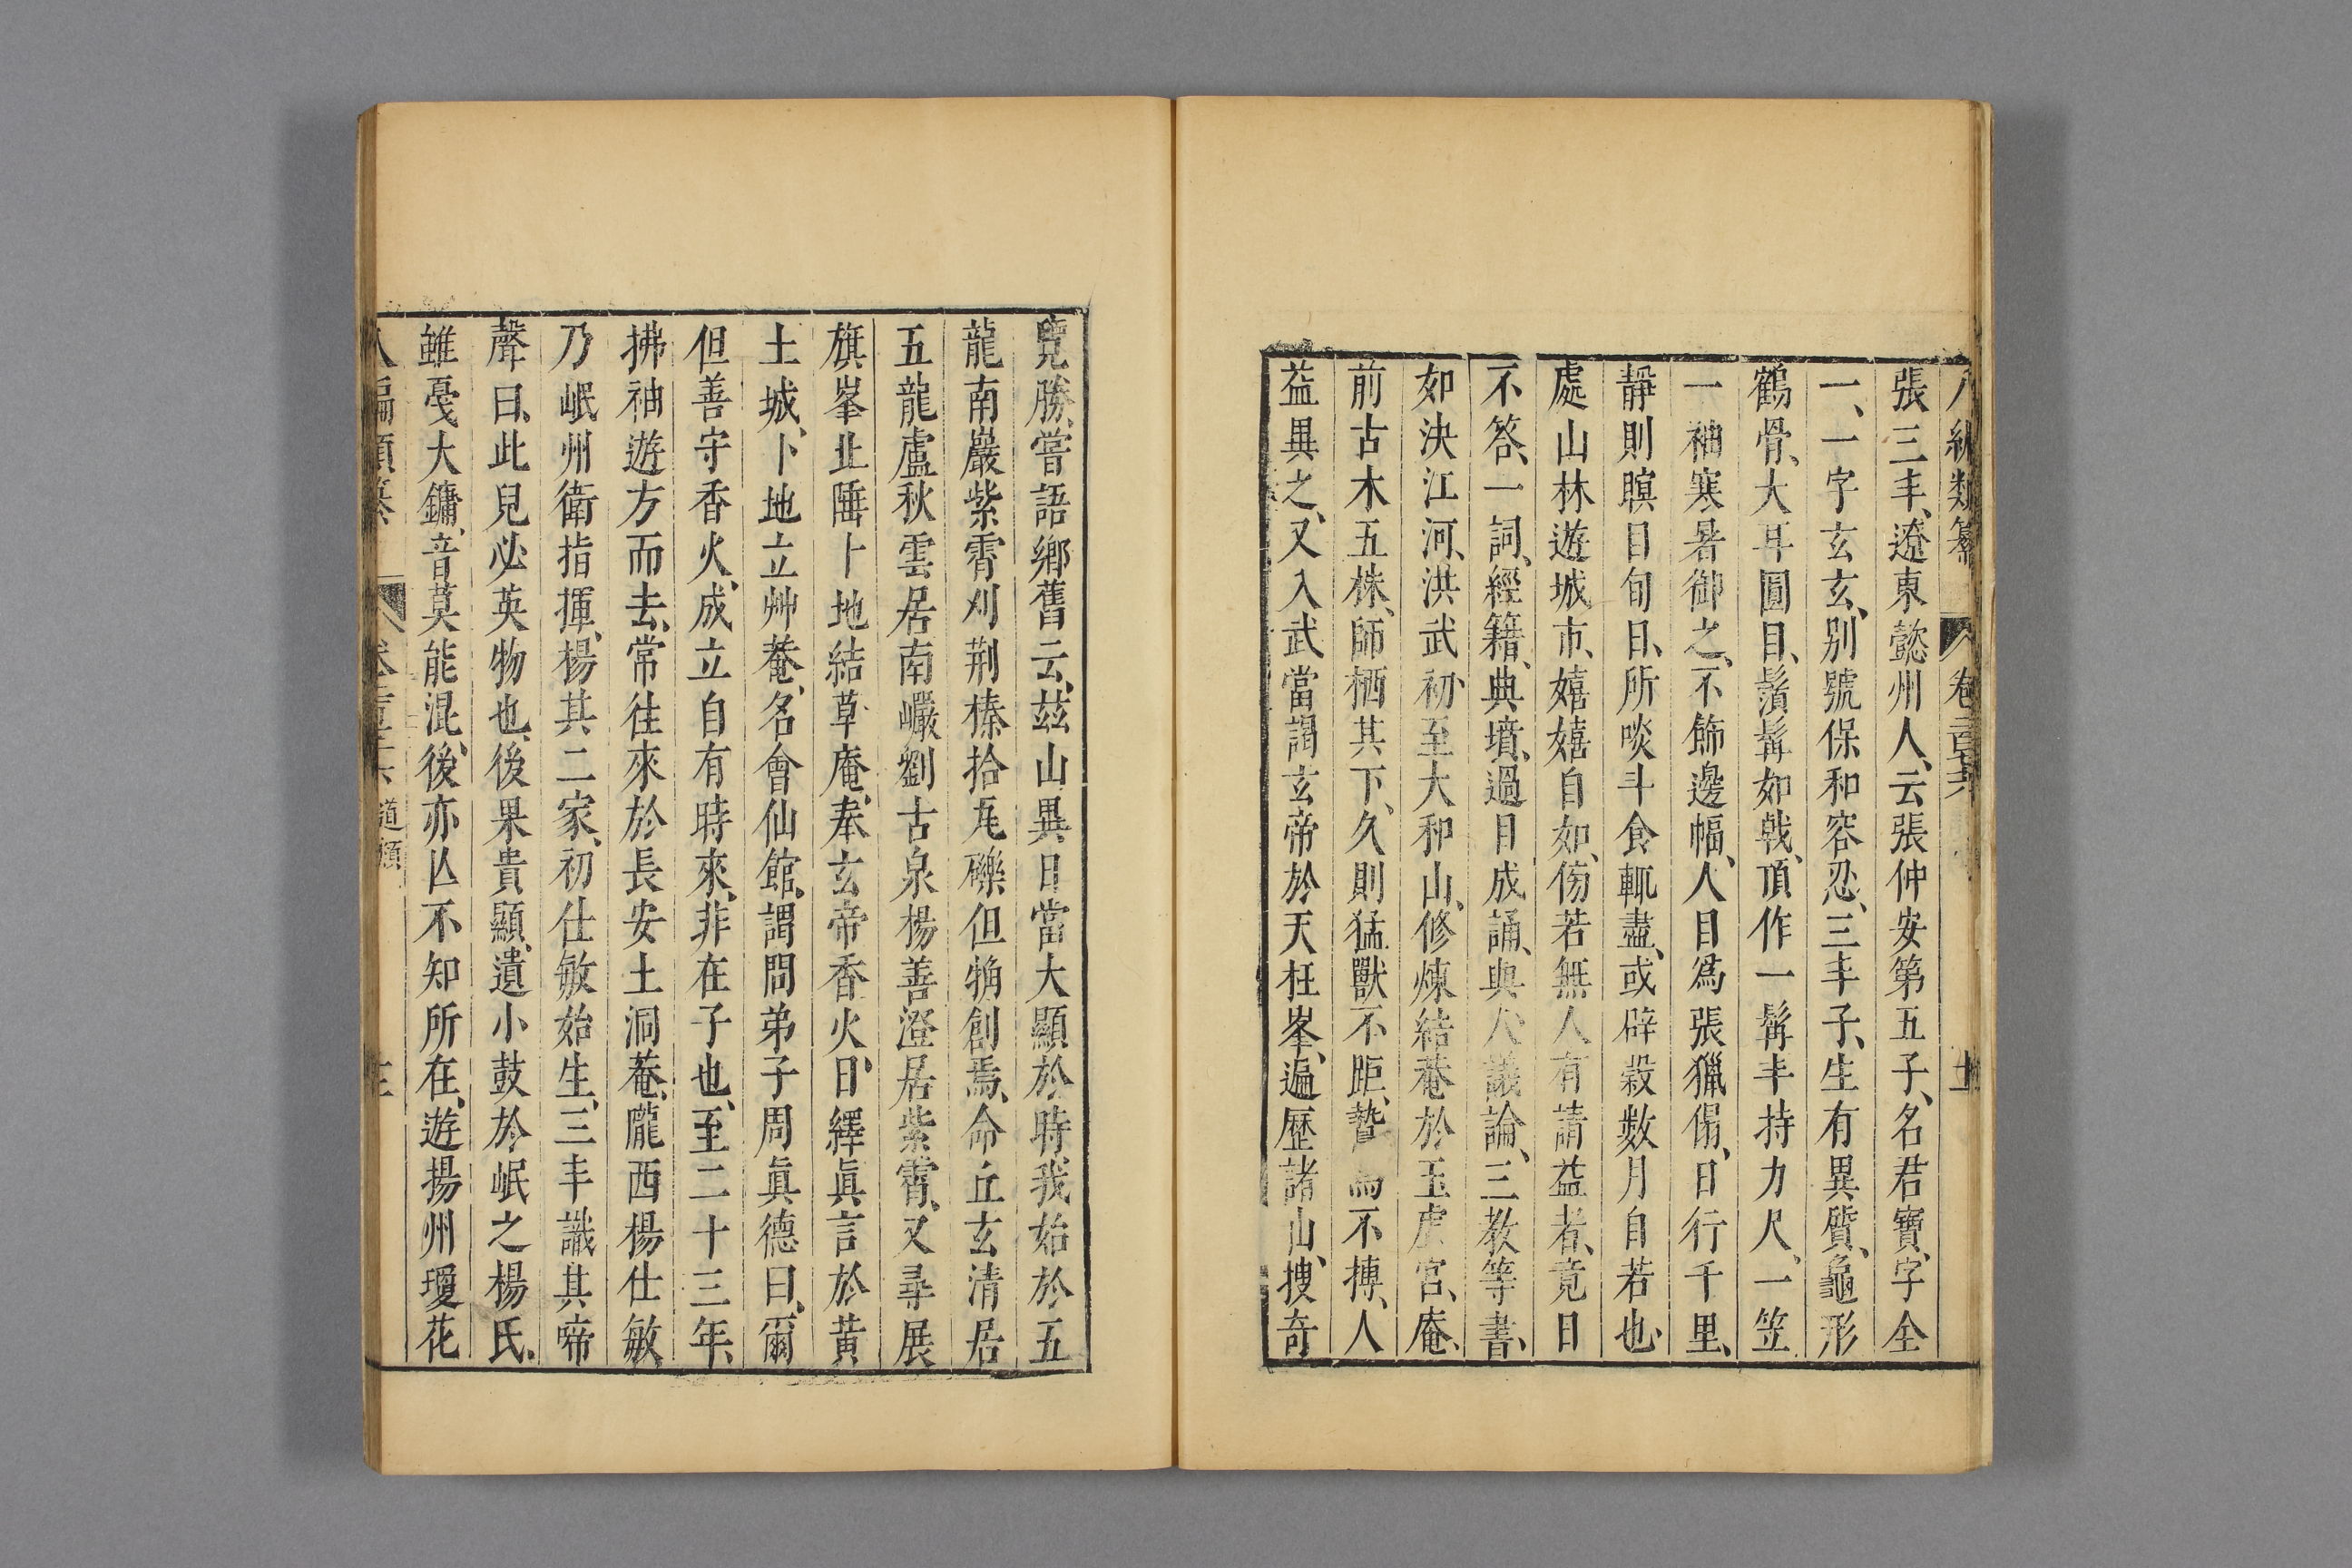 八編類纂 卷二百三十六 十二
張三丰、遼東懿州人、云張仲安第五子、名君寶、字全
一、一字玄玄、別號保和容忍、三丰子、生有異質、龜形
鶴骨、大耳圓目、鬚髯如戟、頂作一髻、丰持刀尺、一笠
一衲寒暑御之、不飾邊幅、人目爲張獵倡、日行千里、
靜則瞑目旬日、所啖斗食輒盡、或辟穀數月自若也、
處山林遊城市、嬉嬉自如、傍若無人有請益者、竟日
不答、一詞、經籍、典墳、過目成誦、與人議論、三教等書、
如決江河、洪武初、至大和山、修煉結菴於玉虛宮、庵、
前古木五株、師栖其下、久則猛獸不距、鷙鳥不搏、人
益異之、又入武當謁玄帝於天柱峯、遍歷諸山、搜奇
覽勝、嘗語鄉舊云、茲山異日當大顯於時我始於五
龍南巖紫霄刈荆榛拾瓦礫但粗創焉、命丘玄清居
五龍盧秋雲居南巖劉古泉楊善澄居紫霄、又尋展
旗峯北陲卜地結草庵、奉玄帝香火、曰繹眞言於黃
土城、卜地立艸菴、名會仙館、謂問弟子周眞德曰、爾
但善守香火、成立自有時來、非在子也、至二十三年、
拂袖遊方而去、常往來於長安土洞菴、隴西楊仕敏
乃岷州衛指揮、楊其二家、初仕敏始生、三丰識其啼
聲曰、此兒必英物也、後果貴顯、遺小鼓於岷之楊氏、
雖戞大鏞、音莫能混、後亦亾不知所在、遊揚州瓊花
八編類纂 道類